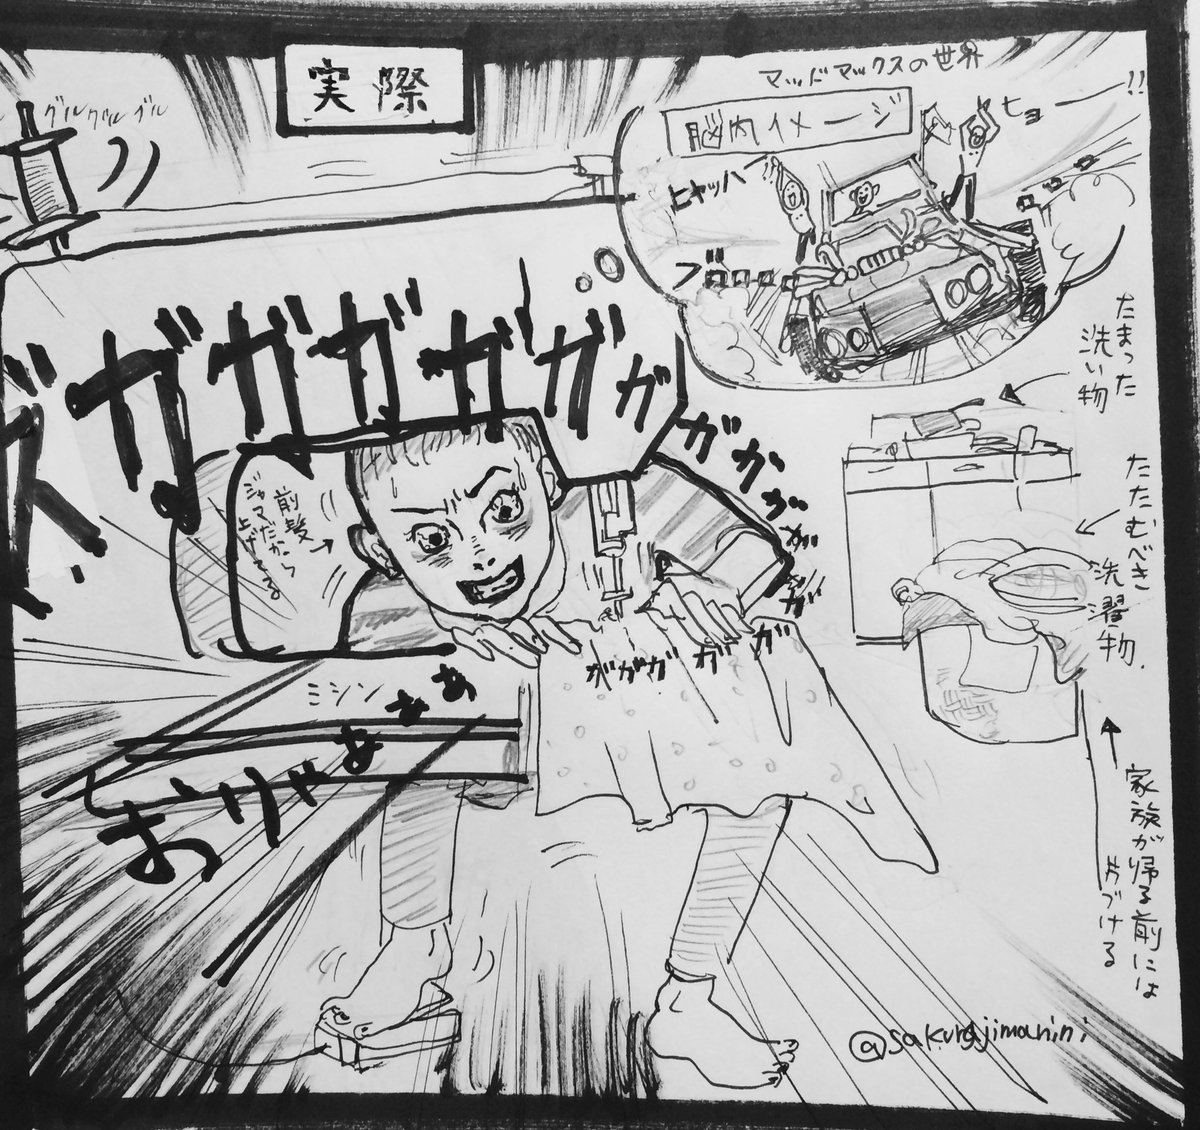 実際
グルグルグル
マッドマックスの世界
脳内イメージ
ヒョーー!!
ヒャッハー
ブロロロ
ズガガガガガガガガガガガガガ
ガガガガガ
前髪
ジャマだから
上げてる
ミシン
おりゃあああぁ
たまった
洗い物
たたむべき
洗濯物
家族が帰る前には
片づける
@sakurajimanini